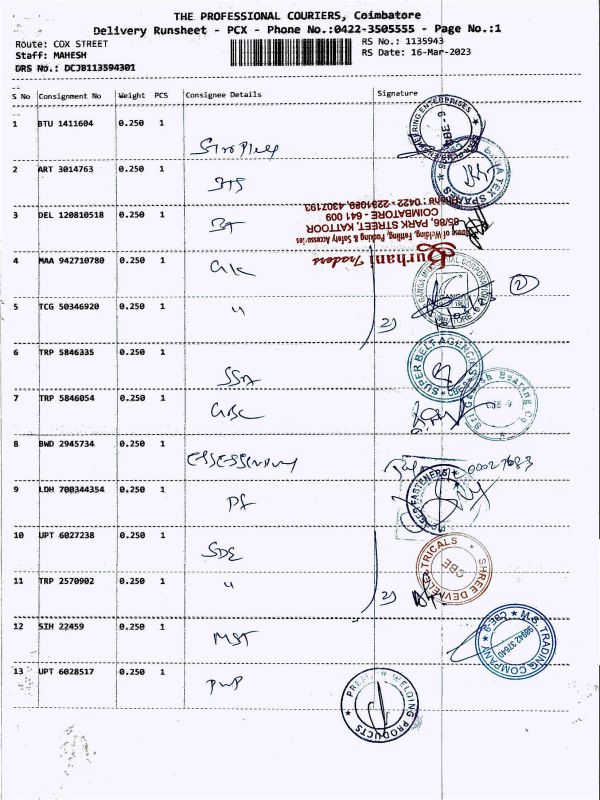 THE PROFESSIONAL COURIERS, Coimbatore
Delivery Runsheet - PCX - Phone No.:0422-3505555 - Page No.:1
Route: COX STREET
RS No.: 1135943
Staff: MAHESH
RS Date: 16-Mar-2023
DRS No.: DCJB113594301
S No Consignment No Weight PCS Consignee Details Signature
1 BTU 1411604 0.250 1
ENGINEERING ENTERPRISES
CBE-9
2 ART 3014763 0.250 1 BTS
TEX SPARES
3 DEL 120810518 0.250 1 BT
Burhani Traders
House of Welding, Fettling, Packing & Safety Accessories
65/86, PARK STREET, KATTOOR
COIMBATORE - 641 009
Phone : 0422 - 2231089, 4307193
4 MAA 942710780 0.250 1 GIC
INDUSTRIAL CORPORATION
2
5 TCG 50346920 0.250 1 "
2)
6 TRP 5846335 0.250 1 SSA
SUPER BELT AGENCIES
CBE-9
7 TRP 5846054 0.250 1 GBC
Sri Ganesh Bearing Co
CBE -9
8 BWD 2945734 0.250 1
9 LDH 700344354 0.250 1 PF
FASTENERS
10 UPT 6027238 0.250 1 SDE
SHREE DEVI ELECTRICALS
CBE
11 TRP 2570902 0.250 1 "
2)
12 SIH 22459 0.250 1 MST
M.S. TRADING COMPANY
CBE-9
98942 37640
13 UPT 6028517 0.250 1 PWP
PREMIER WELDING PRODUCTS